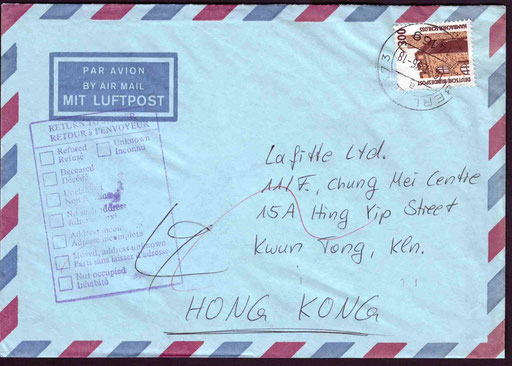 PAR AVION
BY AIR MAIL
MIT LUFTPOST
300
DEUTSCHE BUNDESPOST
HAMBACHER SCHLOSS
BERL
73
RETURN TO
RETOUR à l'ENVOYEUR
Refused
Refusé
Unknown
Inconnu
Deceased
Décédé
No such address
Address incom
Adresse incomplète
Moved, address unknown
Parti sans laisser d'adresse
Not occupied
Inhabité
Lafitte Ltd.
11/F., Chung Mei Centre
15A Hing Yip Street
Kwun Tong, Kln.
HONG KONG